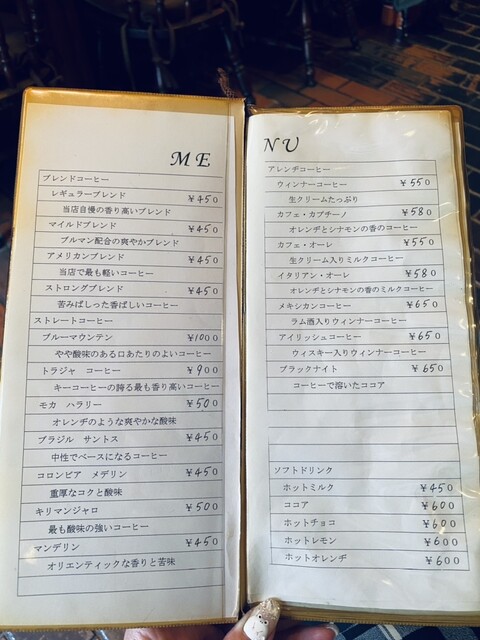 ME
ブレンドコーヒー
レギュラーブレンド ¥450
当店自慢の香り高いブレンド
マイルドブレンド ¥450
ブルマン配合の爽やかブレンド
アメリカンブレンド ¥450
当店で最も軽いコーヒー
ストロングブレンド ¥450
苦みばしった香ばしいコーヒー
ストレートコーヒー
ブルーマウンテン ¥1000
やや酸味のある口あたりのよいコーヒー
トラジャ コーヒー ¥900
キーコーヒーの誇る最も香り高いコーヒー
モカ ハラリー ¥500
オレンヂのような爽やかな酸味
ブラジル サントス ¥450
中性でベースになるコーヒー
コロンビア メデリン ¥450
重厚なコクと酸味
キリマンジャロ ¥500
最も酸味の強いコーヒー
マンデリン ¥450
オリエンティックな香りと苦味
NU
アレンヂコーヒー
ウィンナーコーヒー ¥550
生クリームたっぷり
カフェ・カプチーノ ¥580
オレンヂとシナモンの香のコーヒー
カフェ・オーレ ¥550
生クリーム入りミルクコーヒー
イタリアン・オーレ ¥580
オレンヂとシナモンの香のミルクコーヒー
メキシカンコーヒー ¥650
ラム酒入りウィンナーコーヒー
アイリッシュコーヒー ¥650
ウィスキー入りウィンナーコーヒー
ブラックナイト ¥650
コーヒーで溶いたココア
ソフトドリンク
ホットミルク ¥450
ココア ¥600
ホットチョコ ¥600
ホットレモン ¥600
ホットオレンヂ ¥600